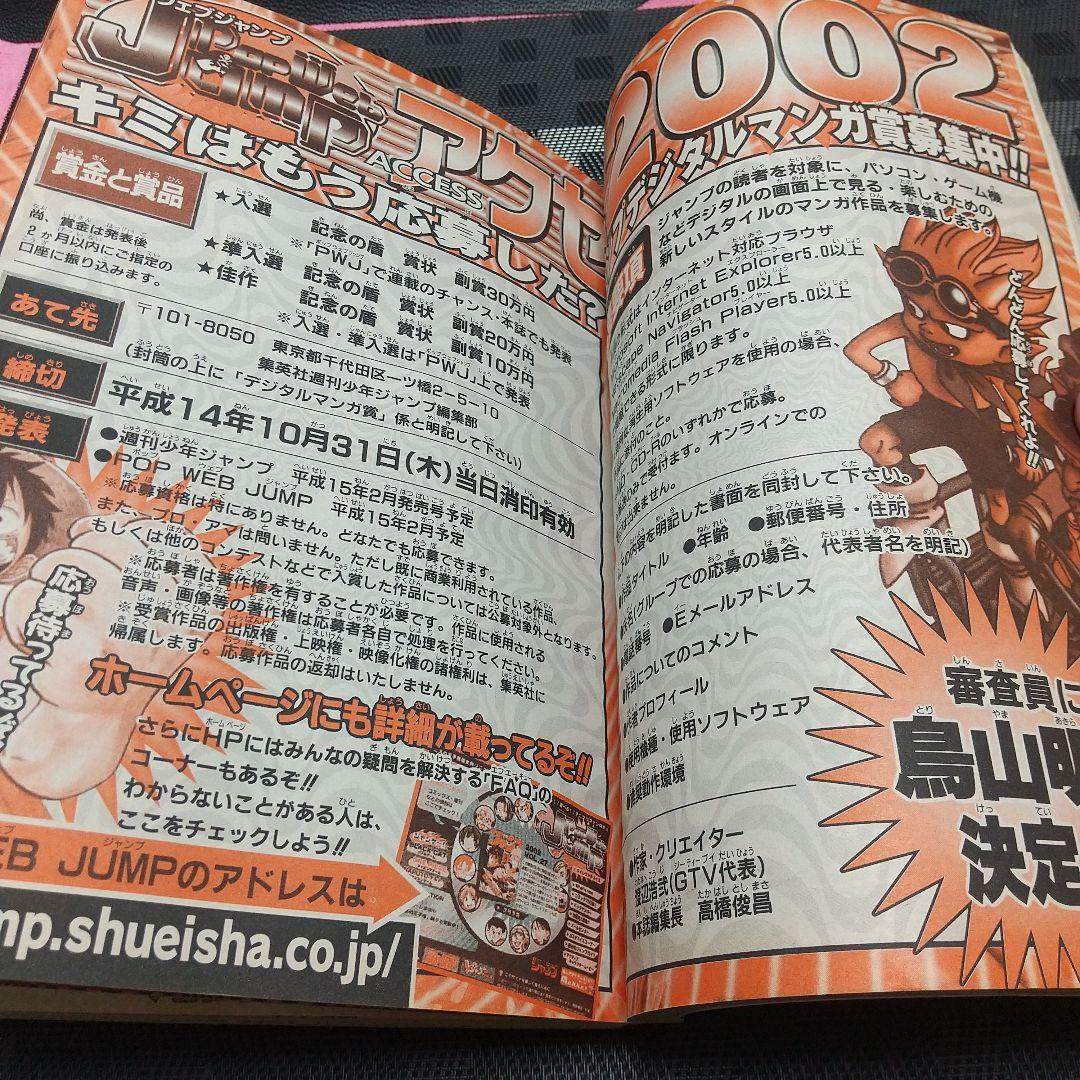 ウェブジャンプ
Pop Web
JUMP
ACCESS
アクセ
キミはもう応募した?
賞金と賞品
尚、賞金は発表後
2か月以内にご指定の
口座に振り込みます。
★入選 記念の盾 賞状 副賞30万円
※「PWJ」で連載のチャンス・本誌でも発表
★準入選 記念の盾 賞状 副賞20万円
★佳作 記念の盾 賞状 副賞10万円
※入選・準入選は「PWJ」上で発表
あて先
〒101-8050 東京都千代田区一ツ橋2-5-10
集英社週刊少年ジャンプ編集部
(封筒の上に「デジタルマンガ賞」係と明記して下さい)
締切
平成14年10月31日(木)当日消印有効
発表
●週刊少年ジャンプ 平成15年2月発売号予定
●POP WEB JUMP 平成15年2月予定
※応募資格は特にありません。どなたでも応募できます。
また、プロ・アマは問いません。ただし既に商業利用されている作品、
もしくは他のコンテストなどで入賞した作品については公募対象外となります。
※応募者は著作権を有することが必要です。作品に使用される
音声・画像等の著作権は応募者各自で処理を行ってください。
※受賞作品の出版権・上映権・映像化権の諸権利は、集英社に
帰属します。応募作品の返却はいたしません。
応募待ってるぞ
ホームページにも詳細が載ってるぞ!!
さらにHPにはみんなの疑問を解決する「FAQ」の
コーナーもあるぞ!!
わからないことがある人は、
ここをチェックしよう!!
EB JUMPのアドレスは
mp.shueisha.co.jp/
2002
デジタルマンガ賞募集中!!
ジャンプの読者を対象に、パソコン・ゲーム機
などデジタルの画面上で見る・楽しむための
新しいスタイルのマンガ作品を募集します。
項
形式はインターネット対応ブラウザ
soft Internet Explorer5.0以上
scape Navigator5.0以上
omedia Flash Player5.0以上
できる形式に限ります。
再生用ソフトウェアを使用の場合、
添付のこと。
MO、CD-Rのいずれかで応募。
のみで受付ます。オンラインでの
出来ません。
の内容を明記した書面を同封して下さい。
品タイトル ●年齢 ●郵便番号・住所
名(グループでの応募の場合、代表者名を明記)
電話番号 ●Eメールアドレス
作品についてのコメント
者プロフィール
使用機種・使用ソフトウェア
推奨動作環境
●作家・クリエイター
渡辺浩弐(GTV代表)
●本誌編集長 高橋俊昌
どんどん応募してくれよ!!
審査員に
鳥山明
決定